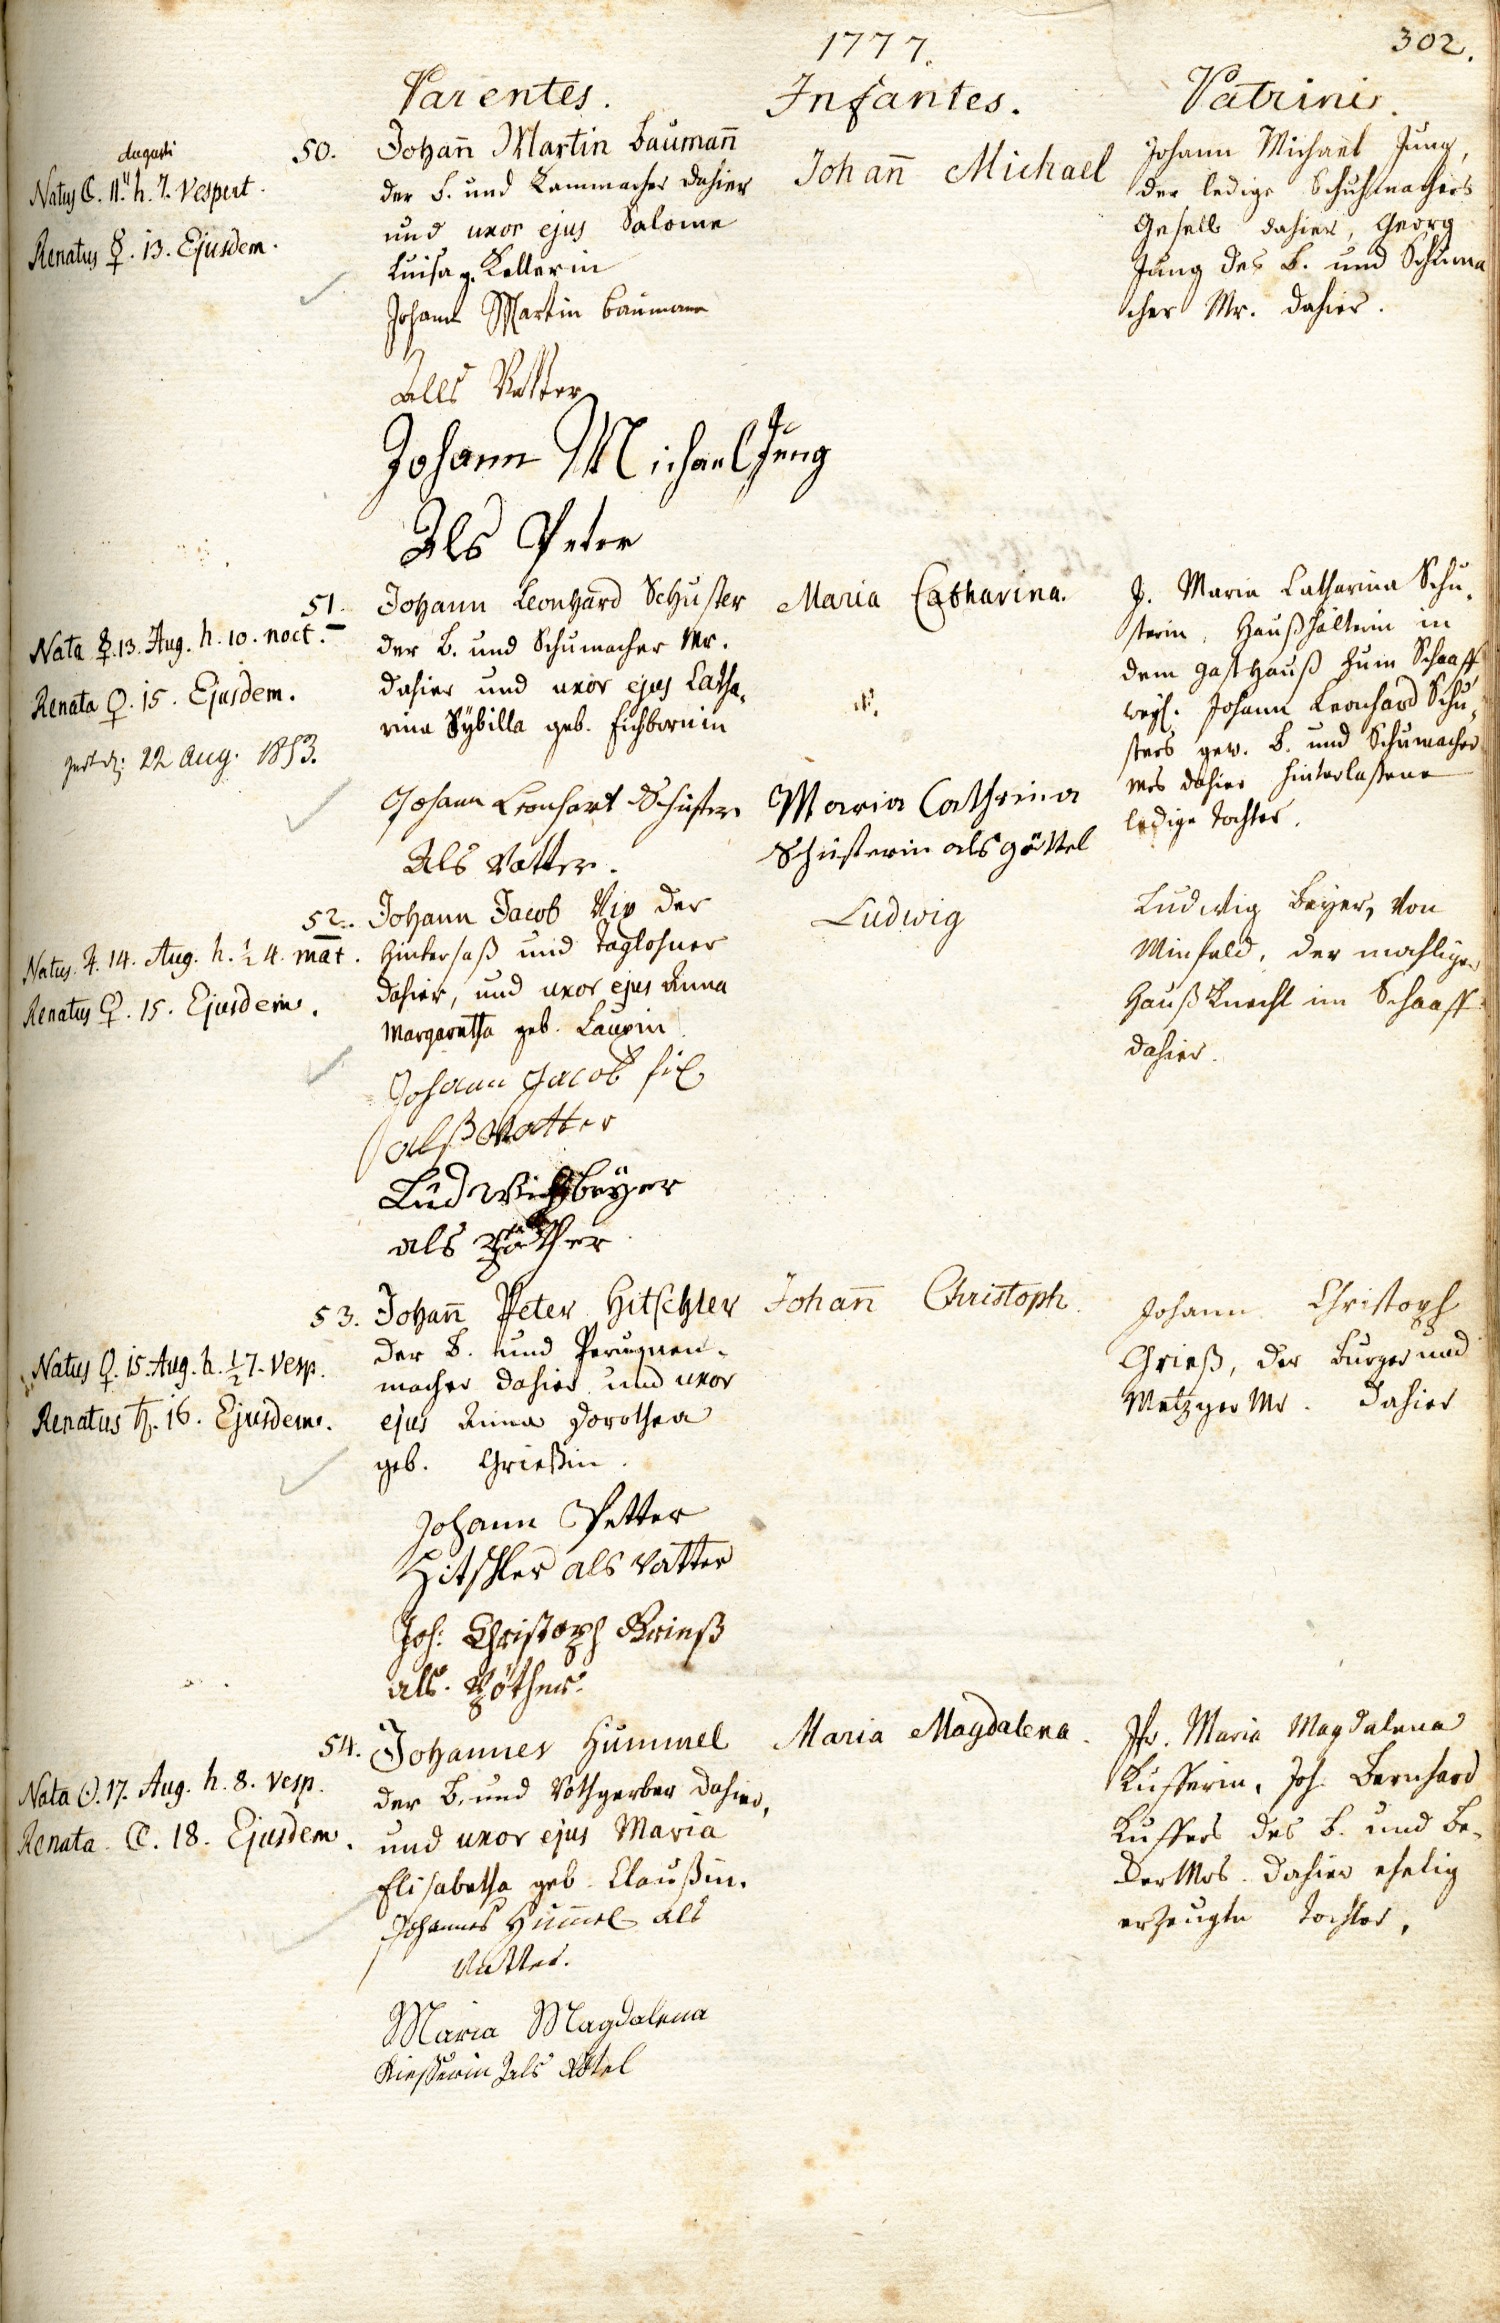 1777.
302.
Parentes.
Infantes.
Patrini.
Augusti
Natus ☾. 11. h. 7. Vespert.
Renatus ☿. 13. Ejusdem.
50.
Johan̄ Martin Bauman̄
der B. und Kammacher dahier
und uxor ejus Salome
Luisa g. Kellerin
Johann Martin Baumann
Alls Vatter
Johann Michael Jung
Als Peter
Johan̄ Michael
Johann Michael Jung,
der ledige Schuhmachers
Gesell dahier, Georg
Jung des B. und Schuma
cher Mr. dahier.
51.
Nata ☿. 13. Aug. h. 10. noct.
Renata ♀. 15. Ejusdem.
gest. d. 22 Aug. 1853.
Johann Leonhard Schuster
der B. und Schumacher Mr.
dahier und uxor ejus Catha-
rina Sybilla geb. Eichbornin
Johann Leonhart Schuster
Als Vatter.
Maria Catharina.
Maria Cathrina
Schusterin als göttel
J. Maria Catharina Schu-
sterin, Haußhälterin in
dem Gasthauß zum Schaaff
weyl. Johann Leonhard Schu-
sters gew. B. und Schumacher
mrs dahier hinterlaßene
ledige Tochter.
52.
Natus ♃. 14. Aug. h. ½ 4. mat.
Renatus ♀. 15. Ejusdem.
Johann Jacob Vix der
Hintersaß und Taglohner
dahier, und uxor ejus Anna
Margaretha geb. Lauxin
Johann Jacob fix
alß Vatter
Ludwich beyer
als
Ludwig
Ludwig Beyer, von
Minfeld, der mahlige
Hauß Knecht im Schaaff
dahier.
53.
Natus ♀. 15. Aug. h. ½ 7. Vesp.
Renatus ♄. 16. Ejusdem.
Johan̄ Peter Hitschler
der B. und Peruquen-
macher dahier und uxor
ejus Anna Dorothea
geb. Grießin.
Johann Petter
Hitschler als Vatter
Joh: Christoph Grieß
als
Johan̄ Christoph.
Johann Christoph
Grieß, der Burger und
Metzger Mr. dahier
54.
Nata ☉. 17. Aug. h. 8. Vesp.
Renata ☾. 18. Ejusdem.
Johannes Hummel
der B. und Rothgerber dahier,
und uxor ejus Maria
Elisabetha geb. Claußin.
Johannes Hummel als
Vatter.
Maria Magdalena
als
Maria Magdalena.
Jfr. Maria Magdalena
Kufferin, Joh. Bernhard
Kuffers des B. und Be-
der Mrs. dahier ehelig
erzeugte Tochter,